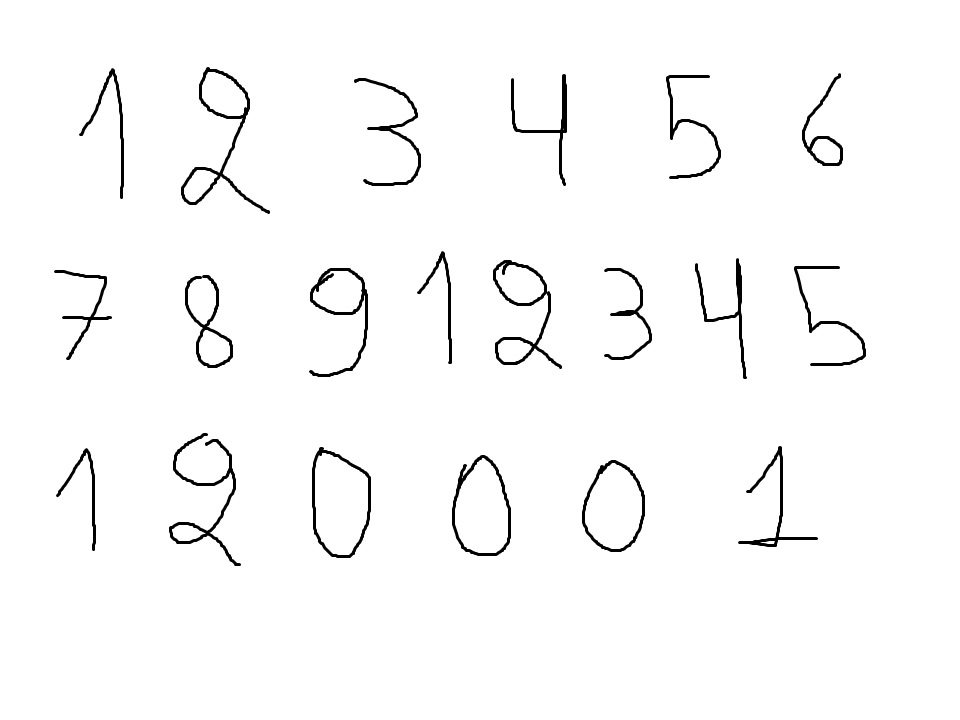 1 2 3 4 5 6
7 8 9 1 2 3 4 5
1 2 0 0 0 1